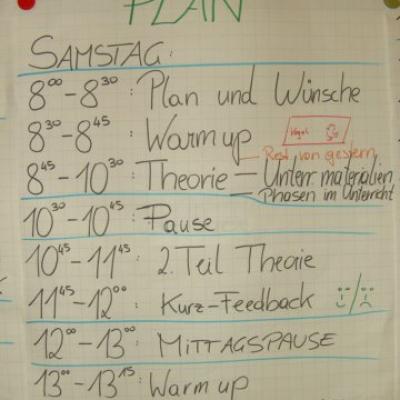 PLAN
SAMSTAG:
8⁰⁰-8³⁰: Plan und Wünsche
8³⁰-8⁴⁵: Warm up
Rest von gestern
8⁴⁵-10³⁰: Theorie - Unterr.materialien
- Phasen im Unterricht
10³⁰-10⁴⁵: Pause
10⁴⁵-11⁴⁵: 2. Teil Theorie
11⁴⁵-12⁰⁰: Kurz-Feedback
12⁰⁰-13⁰⁰: MITTAGSPAUSE
13⁰⁰-13¹⁵: Warm up